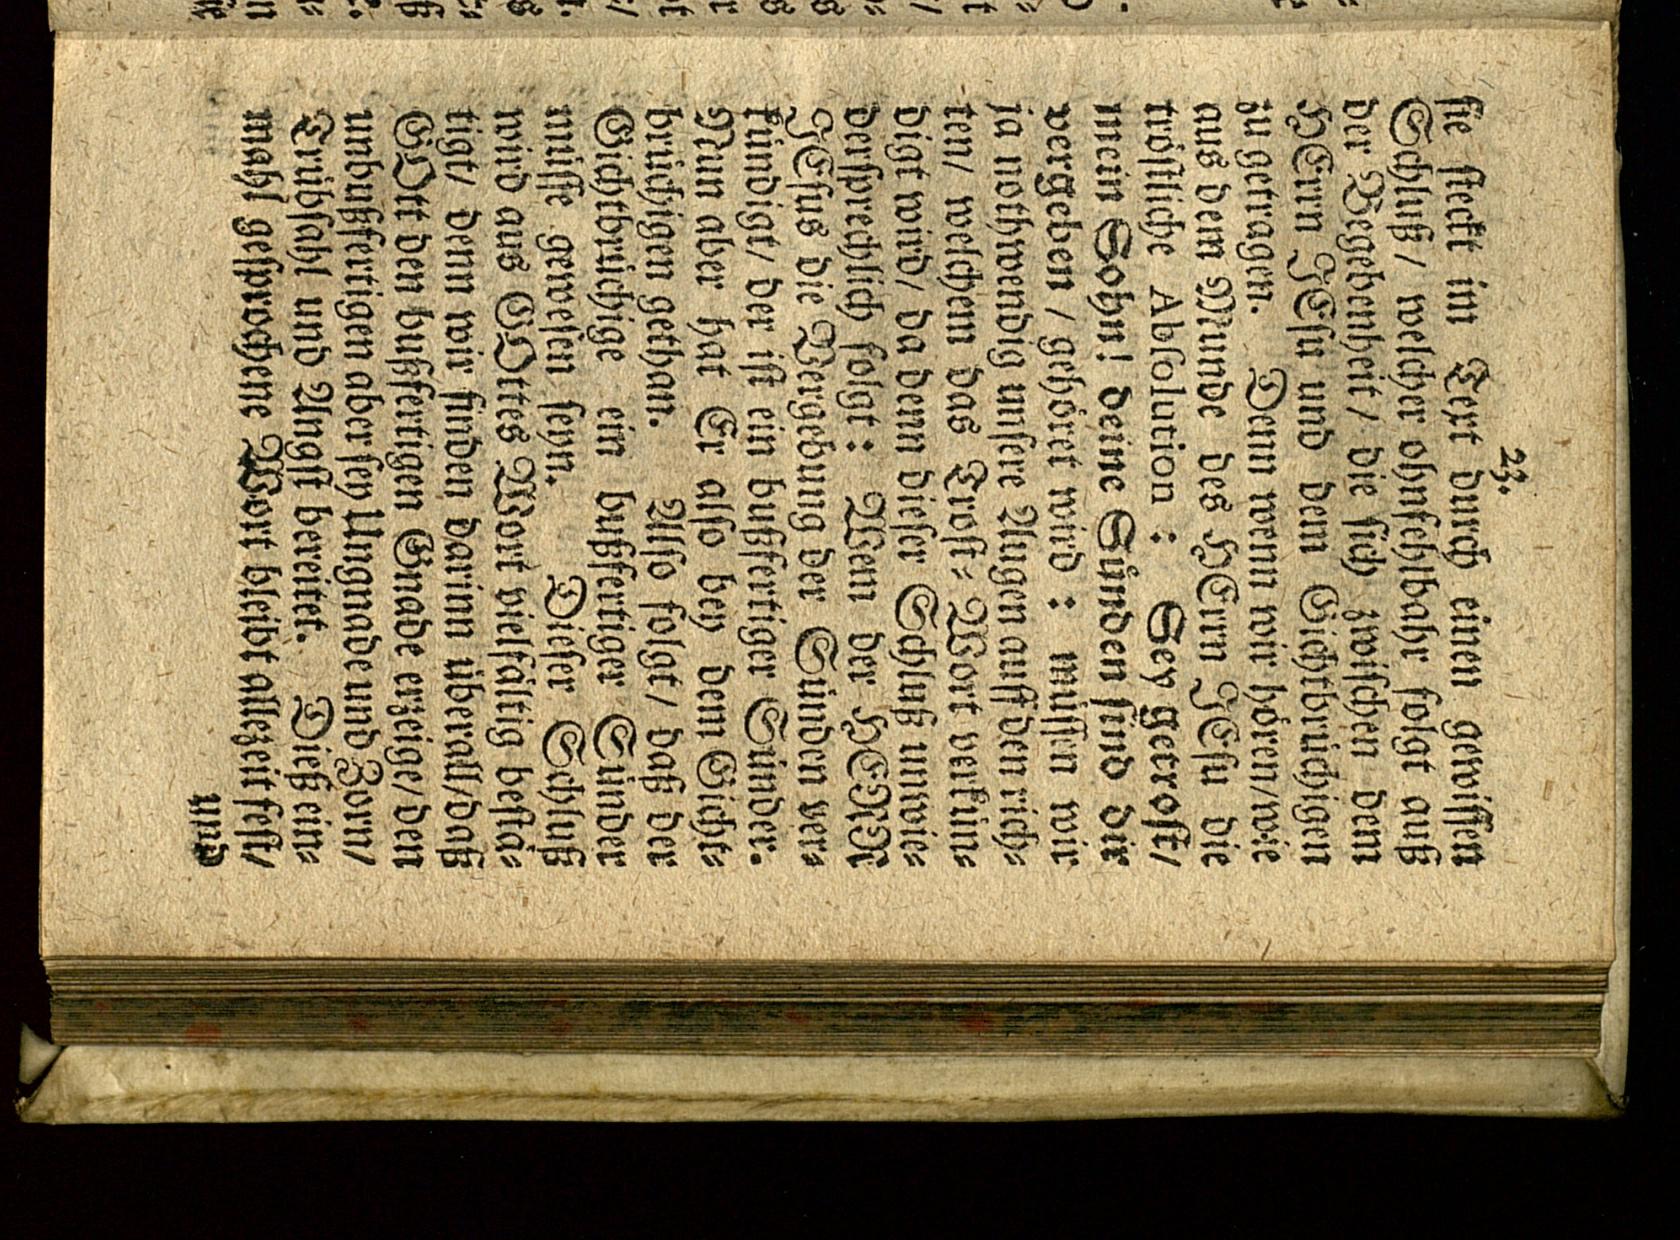 23.
sie steckt im Text durch einen gewissen
Schluß / welcher ohnfehlbahr folgt auß
der Begebenheit / die sich zwischen dem
HErrn JEsu und dem Gichtbrüchigen
zu getragen. Denn wenn wir hören/wie
aus dem Munde des HErrn JEsu die
tröstliche Absolution : Sey getrost/
mein Sohn! deine Sünden sind dir
vergeben / gehöret wird : müssen wir
ja nothwendig unsere Augen auff den rich⸗
ten/ welchem das Trost⸗Wort verkün⸗
digt wird/ da denn dieser Schluß unwie⸗
dersprechlich folgt : Wem der HERR
JEsus die Vergebung der Sünden ver⸗
kündigt/ der ist ein bußfertiger Sünder.
Nun aber hat Er also bey dem Gicht⸗
brüchigen gethan. Also folgt/ daß der
Gichtbrüchige ein bußfertiger Sünder
müsse gewesen seyn. Dieser Schluß
wird aus GOttes Wort vielfältig bestä⸗
tigt/ denn wir finden darinn überall/daß
GOtt den bußfertigen Gnade erzeige/den
unbußfertigen aber sey Ungnade und Zorn/
Trübsahl und Angst bereitet. Dieß ein⸗
mahl gesprochene Wort bleibt allezeit fest/
und